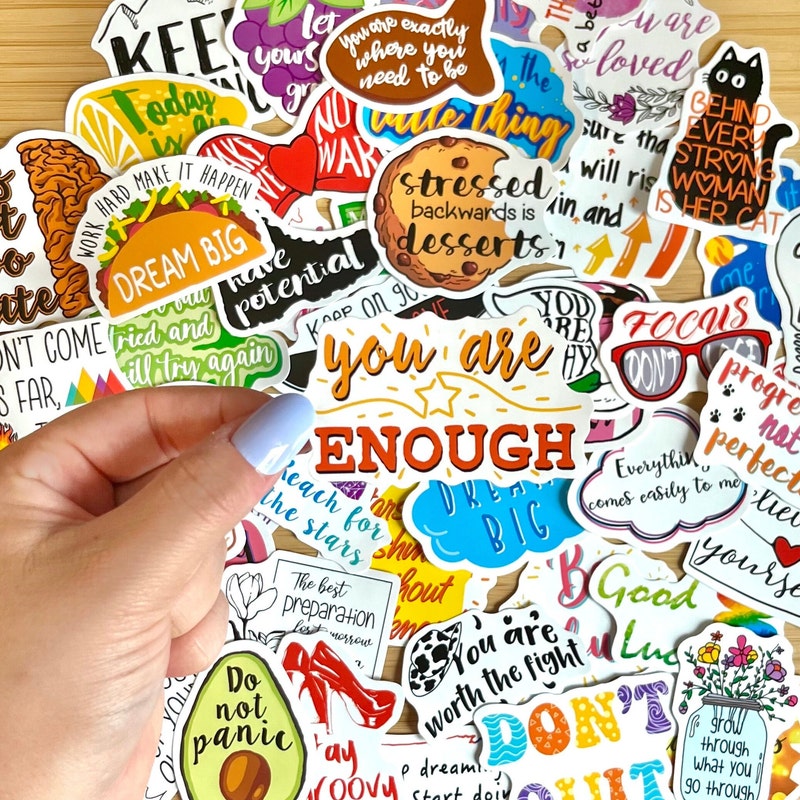 KEE
let
yours
gr
You are exactly
where you
need to be
a bet
you are
so loved
Today
is a
NO
WAR
the
little thing
sure tha
u will ris
in and
BEHIND
EVERY
STRONG
WOMAN
IS HER CAT
WORK HARD MAKE IT HAPPEN
DREAM BIG
stressed
backwards is
desserts
have
potential
tried and
ill try again
Keep on go
YOU
ARE
HY
FOCUS
DON'T
me
ON'T COME
S FAR,
you are
ENOUGH
progre
not
perfect
Everything
comes easily to me
Reach for
the stars
DREAM
BIG
elieve
yourse
The best
preparation
for tomorrow
Good
Luc
You are
worth the fight
Do
not
panic
tay
roovy
p dreamin
start doin
DON'T
QUIT
grow
through
what you
go through